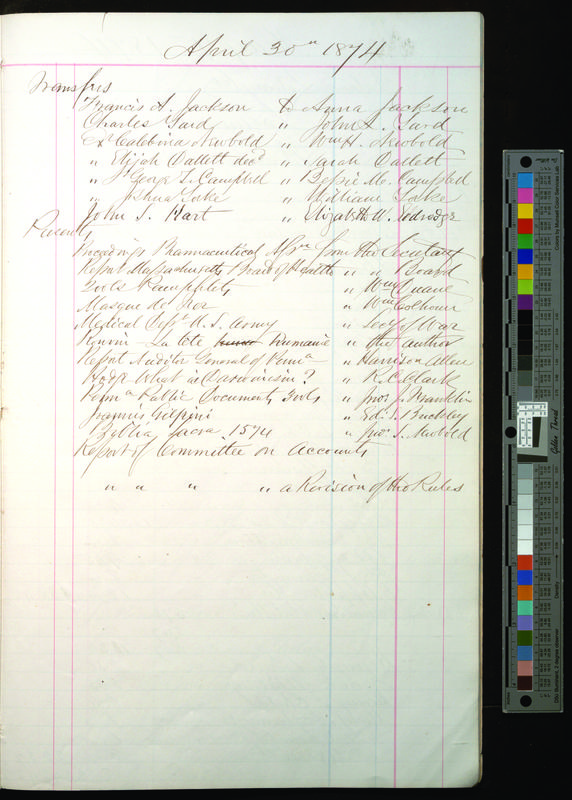 April 30th 1874
Transfers
Francis A. Jackson to Anna Jackson
Charles Yard " John L. Yard
Exr Caleb Newbold " Wm H. Newbold
" Elijah Dallett decd " Sarah Dallett
" St George T. Campbell " Bessie M. Campbell
" Joshua " William
John S. Hart " Elizabeth W.
Presents
Proceedings Pharmaceutical Assn from the Secretary
Report Massachusetts Board of Health " " Board
2 vols & Pamphlets " Wm Duane
Masque de Fer " Wm
Medical Dept U.S. Army " Secy of War
La Cote Roumanie " the Author
Report Auditor General of Penna " Harrison Allen
Hodge What is Darwinism? " R. C. Clark
Penna Public Documents vols " Jno. J. Franklin
Joannis Gilpini " Ed. J. Buckley
Biblia Sacra 1574 " Jno. S. Newbold
Report of Committee on Accounts
" " " " a Revision of the Rules